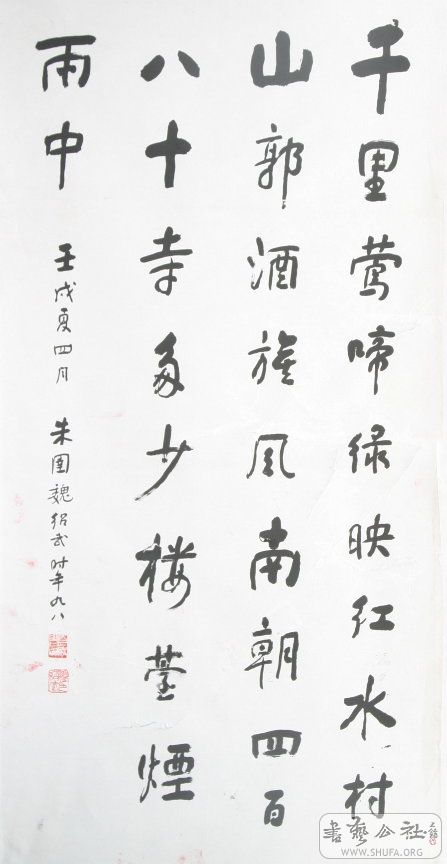 千里莺啼绿映红水村
山郭酒旗风南朝四百
八十寺多少楼台煙
雨中
壬戌夏四月 朱圉魏绍武时年九八
書藝公社
WWW.SHUFA.ORG